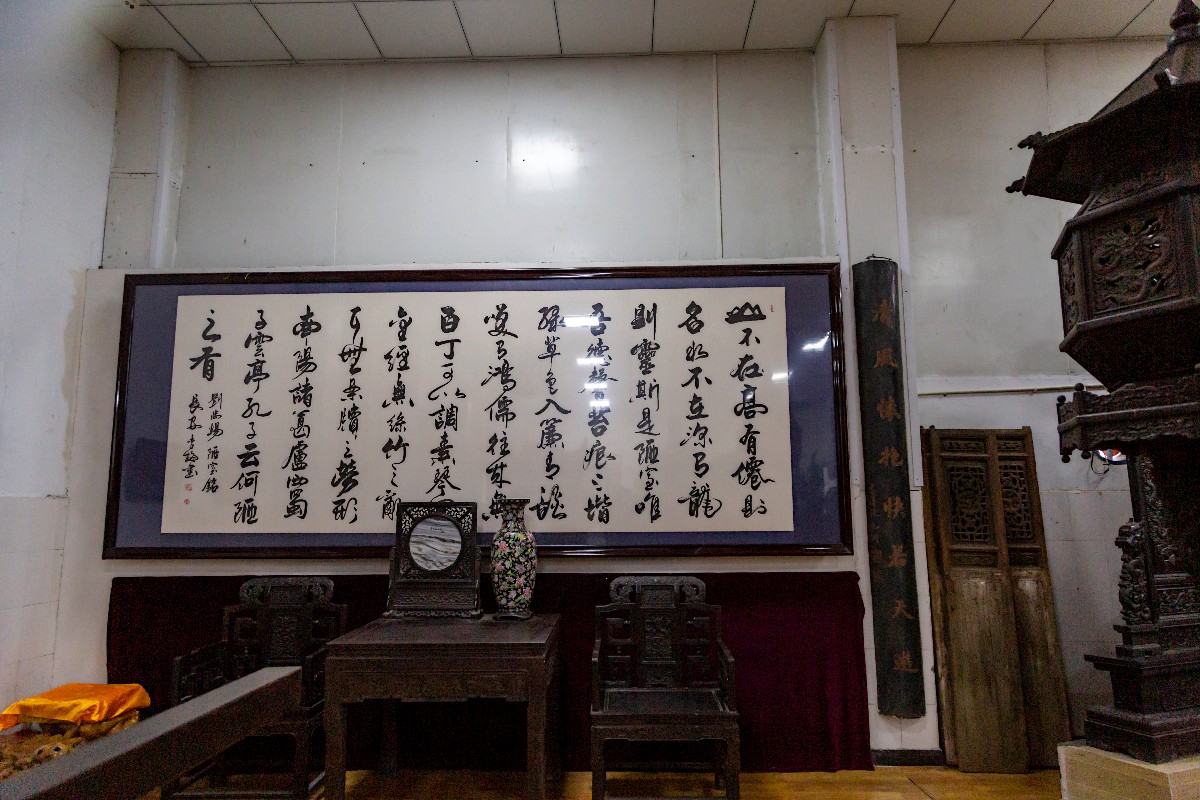 山不在高有僊則
名水不在深有龍
則靈斯是陋室唯
吾德馨苔痕上階
綠草色入簾青談
笑有鴻儒往來無
白丁可以調素琴
金經無絲竹之亂
耳無案牘之勞形
南陽諸葛廬西蜀
子雲亭孔子云何陋
之有
劉禹錫 陋室銘
長安李書
風懷抱快若天